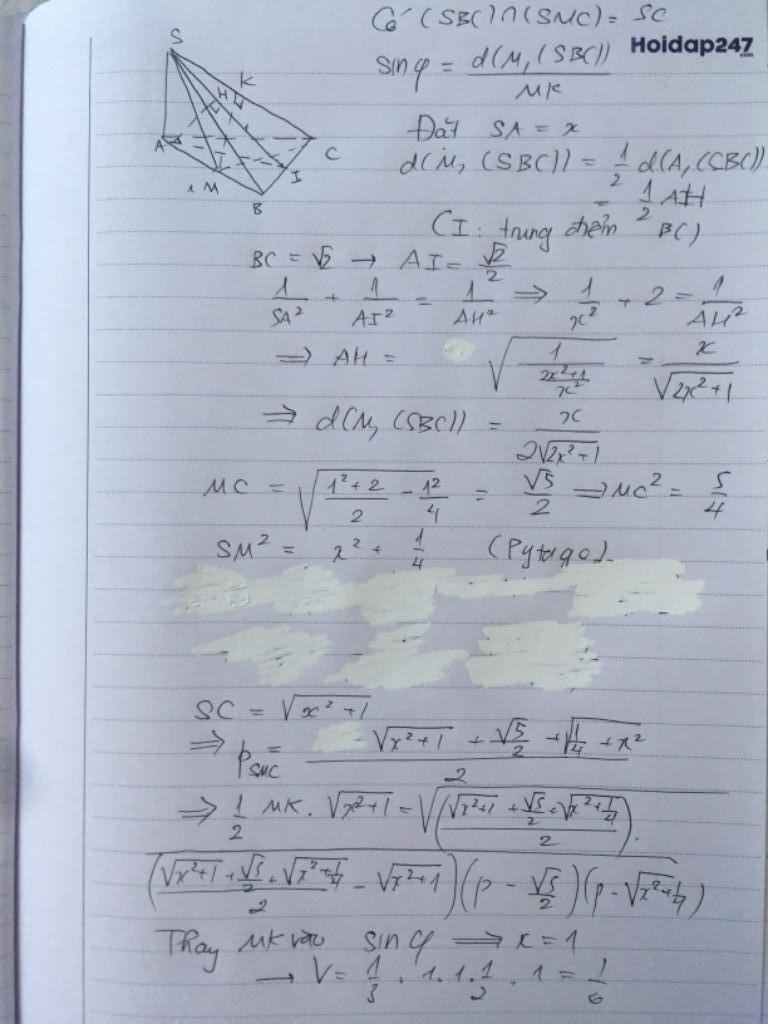 Có (SBC) ∩ (SMC) = SC
Hoidap247
.com
sin φ = d(M, (SBC)) / MK
Đặt SA = x
d(M, (SBC)) = 1/2 d(A, (SBC))
= 1/2 AH
(I: trung điểm BC)
S
K
H
A
C
I
M
B
BC = √2 → AI = √2/2
1/SA² + 1/AI² = 1/AH² ⇒ 1/x² + 2 = 1/AH²
⇒ AH = √(1/((2x²+1)/x²)) = x/√(2x²+1)
⇒ d(M, (SBC)) = x/(2√(2x²+1))
MC = √((1²+2)/2 - 1²/4) = √5/2 ⇒ MC² = 5/4
SM² = x² + 1/4 (Pytago).
SC = √(x²+1)
⇒ p_SMC = (√(x²+1) + √5/2 + √(1/4 + x²))/2
⇒ 1/2 MK . √(x²+1) = √((√(x²+1) + √5/2 + √(x²+1/4))/2) .
((√(x²+1) + √5/2 + √(x²+1/4))/2 - √(x²+1)) (p - √5/2) (p - √(x²+1/4))
Thay MK vào sin φ ⇒ x = 1
→ V = 1/3 . 1.1.1/2 . 1 = 1/6